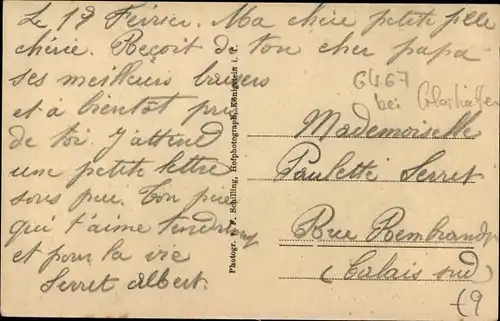 Le 19 Février. Ma chère petite fille
chérie. Reçoit de ton cher papa
ses meilleurs baisers
et à bientôt près
de toi. J'attend
une petite lettre
sous peu. Ton père
qui t'aime tendrement
et pour la vie
Serret Albert.
Photogr. F. Schilling, Hofphotograph, Königstein i. T.
6467
bei
Mademoiselle
Paulette Serret
Rue Rembrandt
(Calais sud)